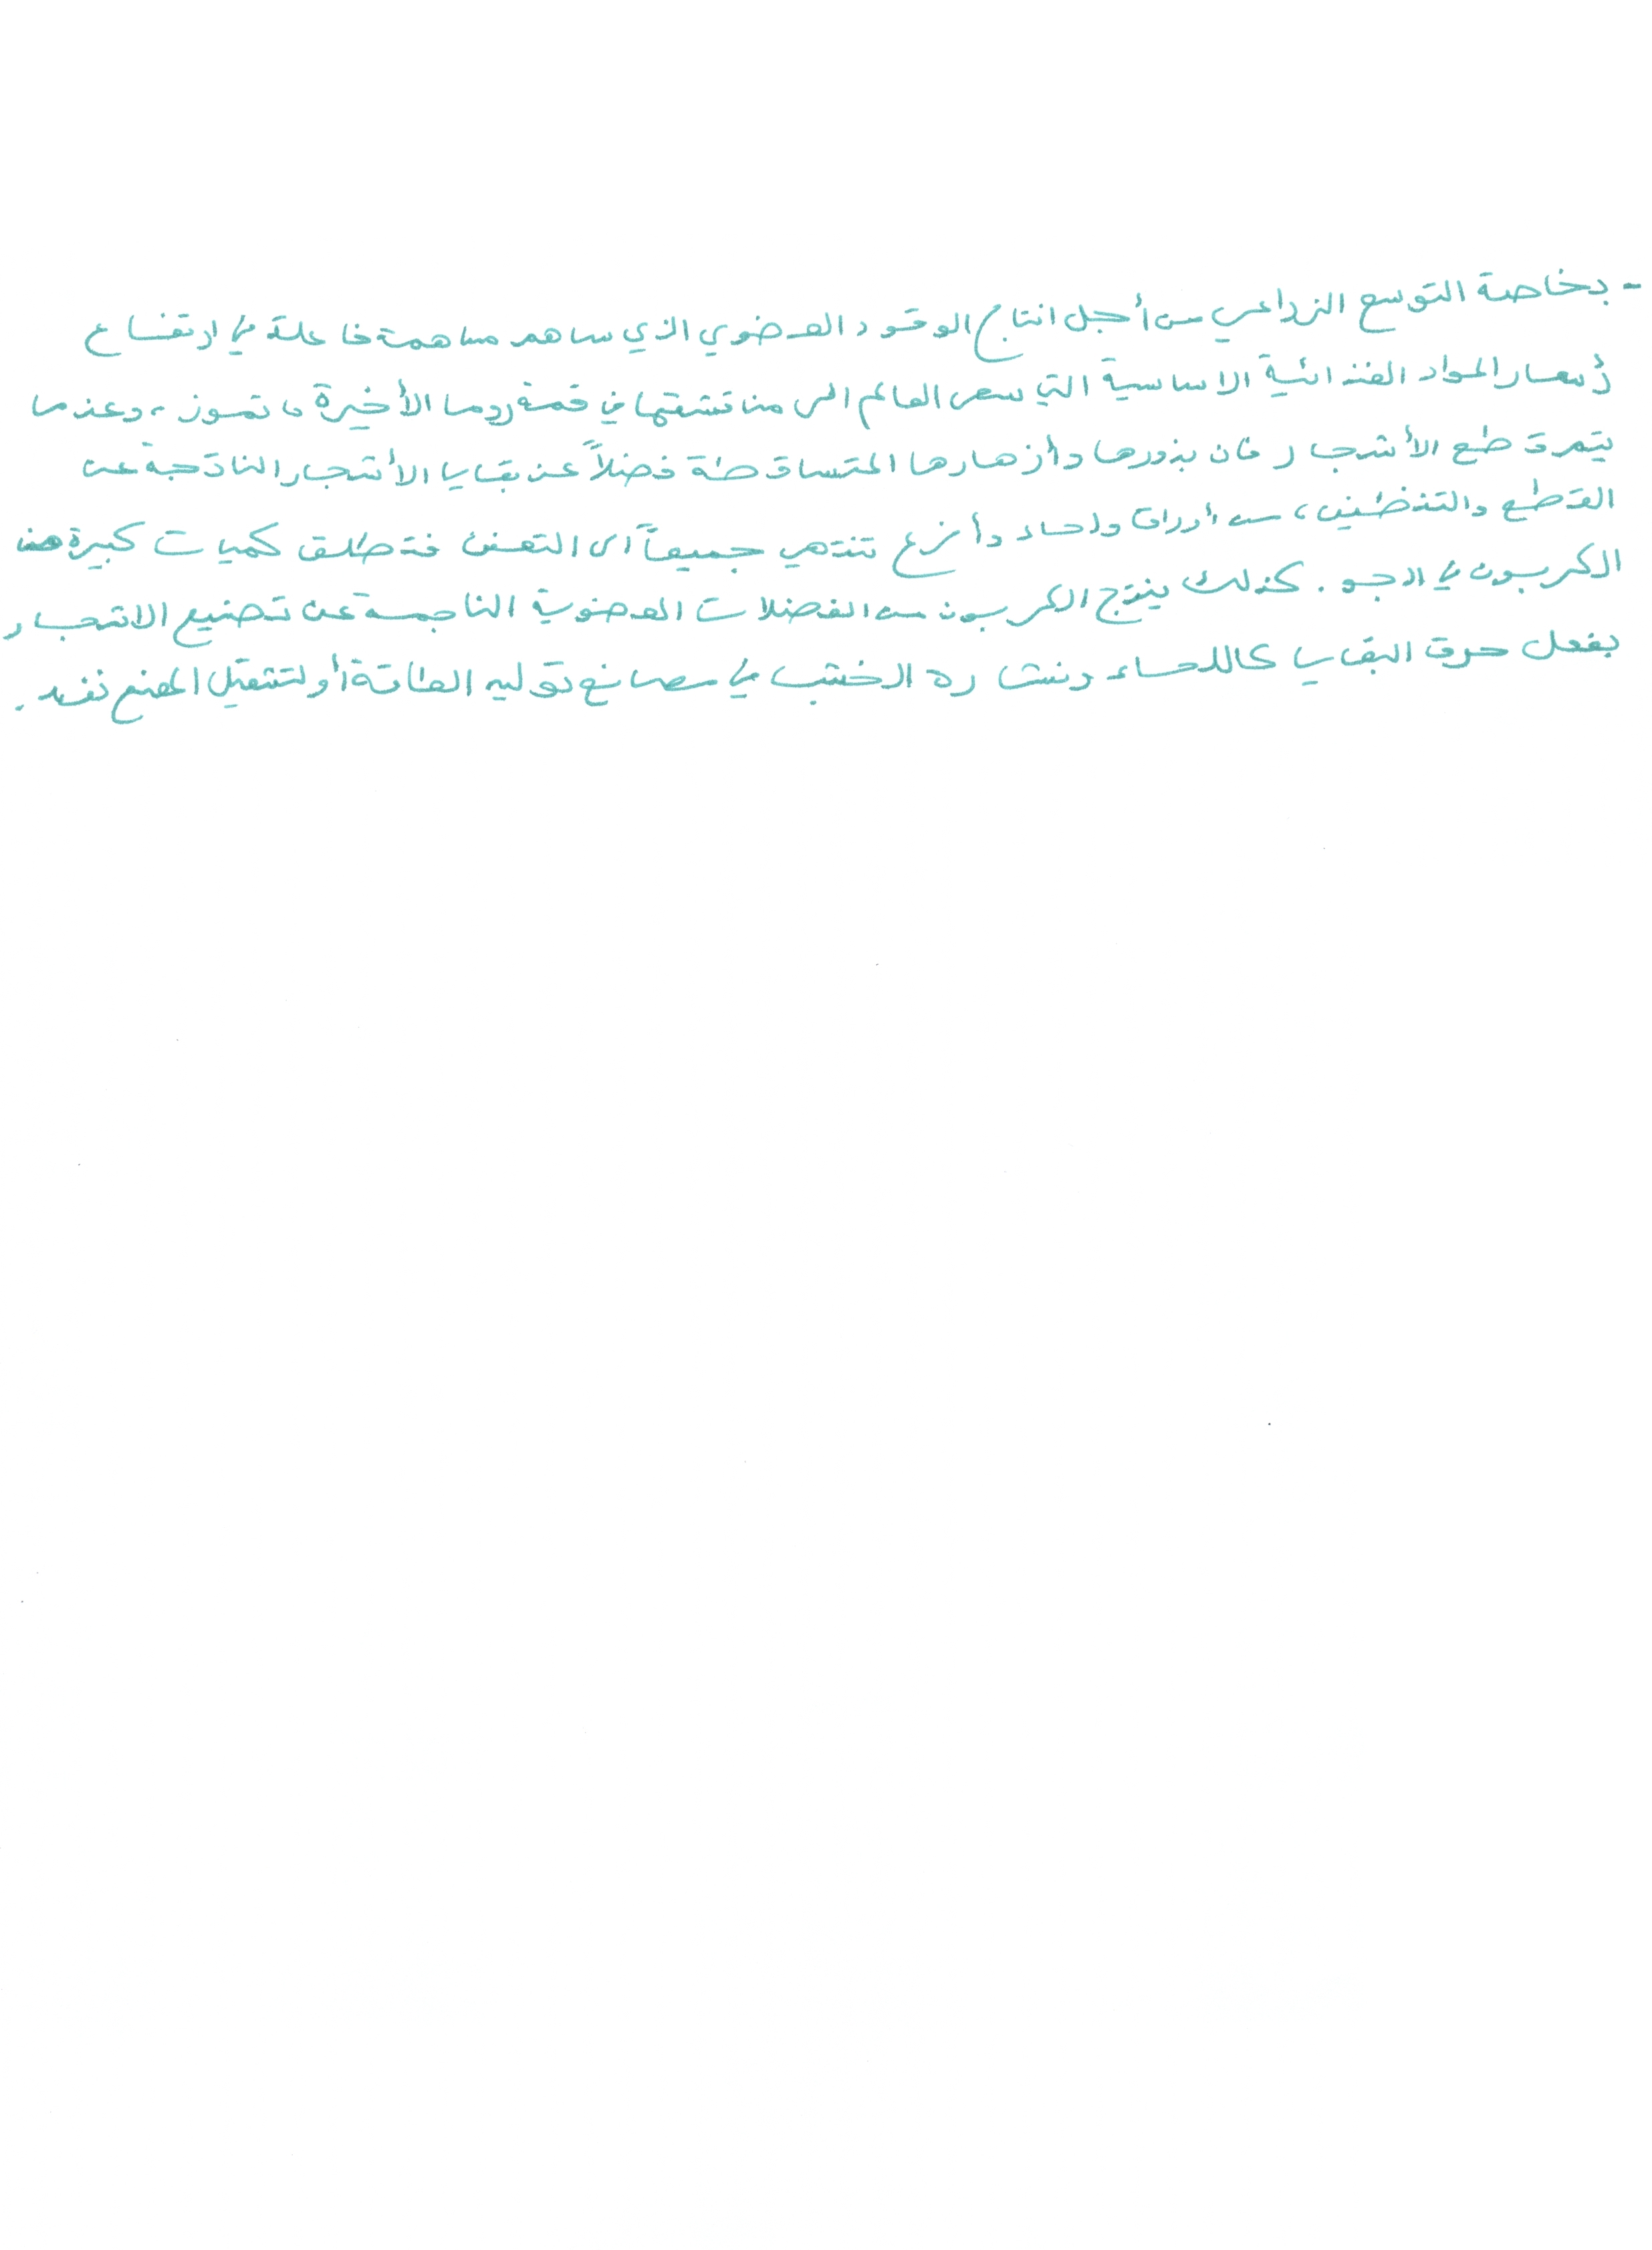 - بخاصة التوسع الزراعي من أجل انتاج الوقود العضوي الذي ساهم مساهمة فاعلة في ارتفاع
أسعار المواد الغذائية الاساسية التي سعى العالم الى مناقشتها في قمة روما الأخيرة تموز، وعندما
يتم قطع الأشجار فان بذورها وأزهارها المتساقطة فضلاً عن بقايا الأشجار الناتجة عن
القطع والتنظيف، من أوراق ولحاء وأفرع تنتهي جميعاً الى التعفن فتطلق كميات كبيرة من
الكربون في الجو. كذلك ينتج الكربون من الفضلات العضوية الناجمة عن تصنيع الاشجار
بفعل حرق البقايا كاللحاء ونشارة الخشب في مصانع توليد الطاقة أو لتشغيل المصنع نفسه.